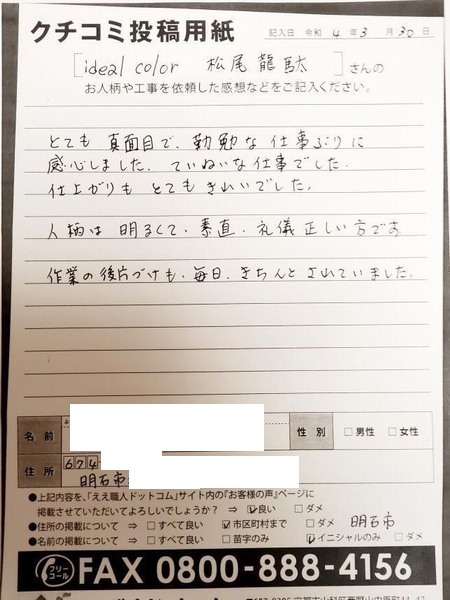 クチコミ投稿用紙
記入日 令和 4 年 3 月 30 日
[ideal color 松尾龍駄]さんの
お人柄や工事を依頼した感想などをご記入ください。
とても真面目で、勤勉な仕事ぶりに
感心しました。ていねいな仕事でした。
仕上がりもとてもきれいでした。
人柄は明るくて、素直、礼儀正しい方です
作業の後片づけも、毎日、きちんとされていました。
名前
性別 □男性 □女性
住所 674
明石市
●上記内容を、「ええ職人ドットコム」サイト内の『お客様の声』ページに
掲載させていただいてよろしいでしょうか? ⇒ ☑良い □ダメ
●住所の掲載について ⇒ □すべて良い ☑市区町村まで □ダメ 明石市
●名前の掲載について ⇒ □すべて良い □苗字のみ ☑イニシャルのみ □ダメ
フリーコール FAX 0800-888-4156